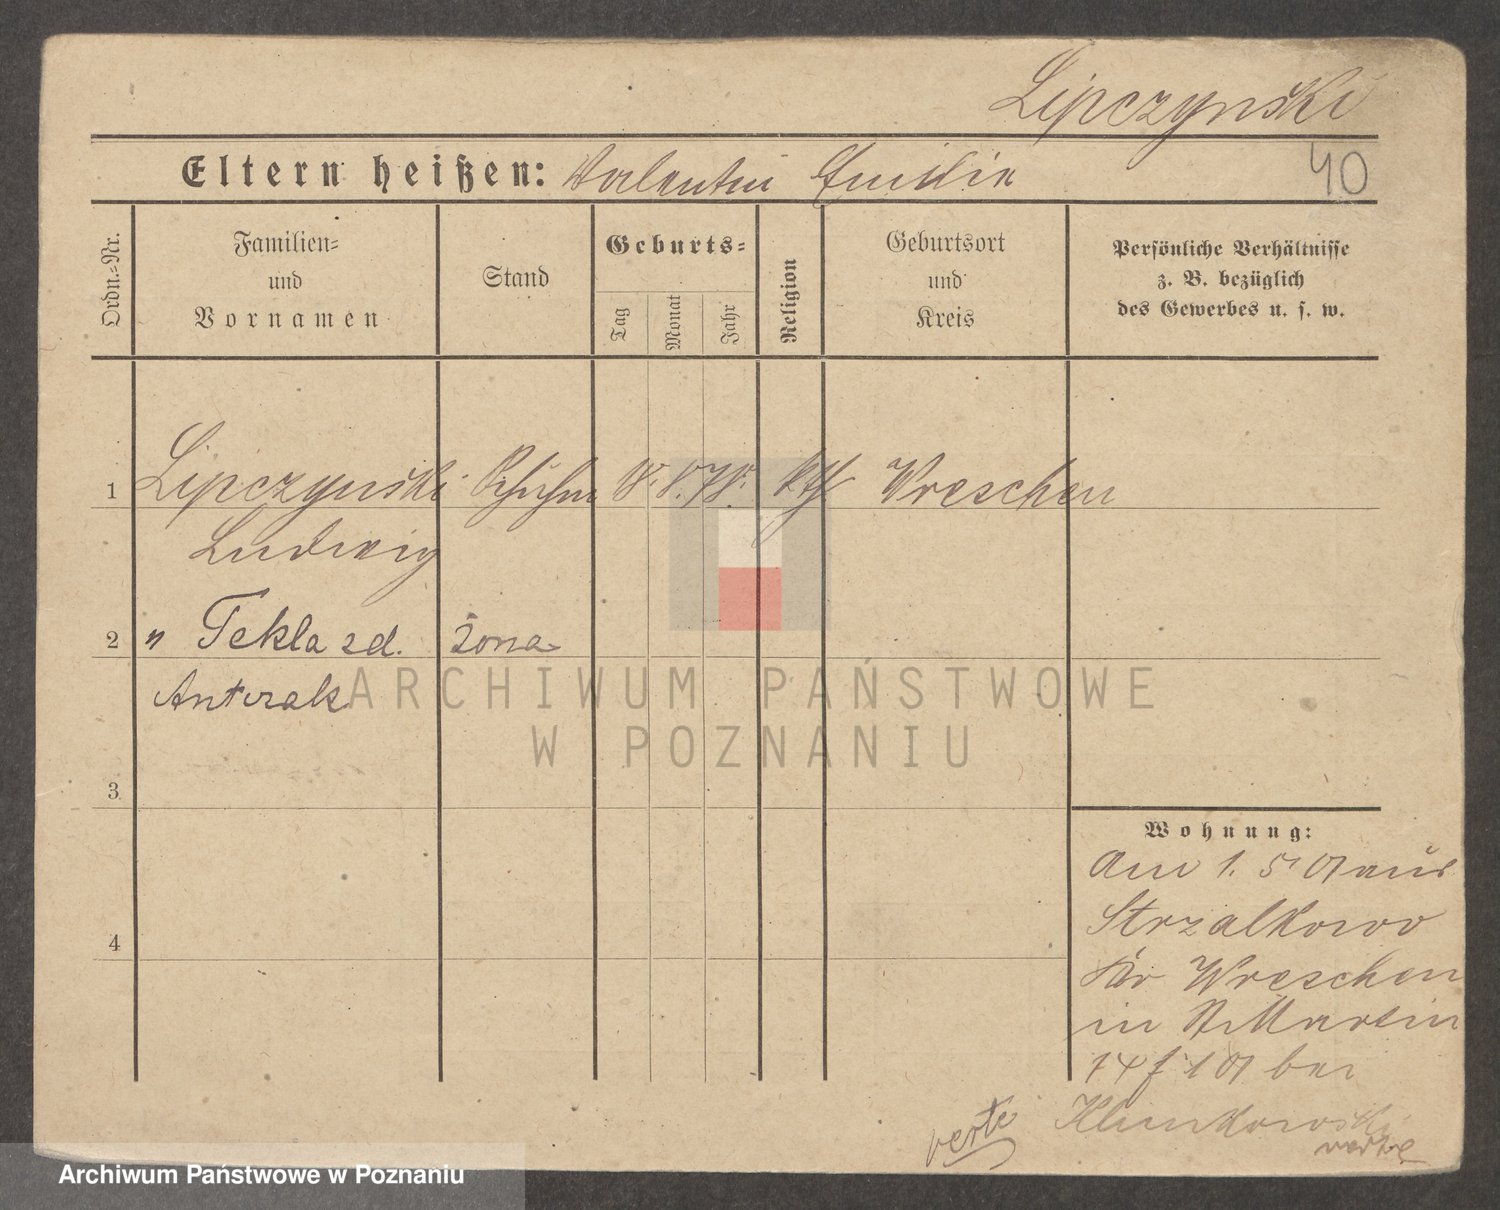 Lipczynski
Eltern heißen: Valentin Emilie
40
Ordn.=Nr.
Familien=
und
Vornamen
Stand
Geburts=
Tag
Monat
Jahr
Religion
Geburtsort
und
Kreis
Persönliche Verhältnisse
z. B. bezüglich
des Gewerbes u. s. w.
1 Lipczynski Schuhm 18. 8. 78. kth Wreschen
Ludwig
2 " Tekla zd. żona
Antczak
3
4
Wohnung:
Am 1. 5. 01 aus
Strzalkowo
Kr Wreschen
in St Martin
bei
verte
verte
ARCHIWUM PAŃSTWOWE
W POZNANIU
Archiwum Państwowe w Poznaniu